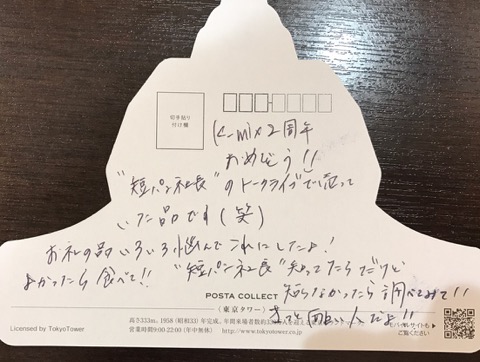 切手貼り
付け欄
2周年
おめでとう!!
"短パン社長"のトークライブで売って
いた品です(笑)
お礼の品いろいろ悩んでこれにしたよ!
よかったら食べて!! "短パン社長"知ってたらだけど
POSTA COLLECT 知らなかったら調べてみて!!
〈東京タワー〉 きっと面白い人だよ!!
高さ333m、1958(昭和33)年完成。年間来場者数約
営業時間9:00-22:00(年中無休) http://www.tokyotower.co.jp
Licensed by TokyoTower
モバイルサイトも
ご覧ください